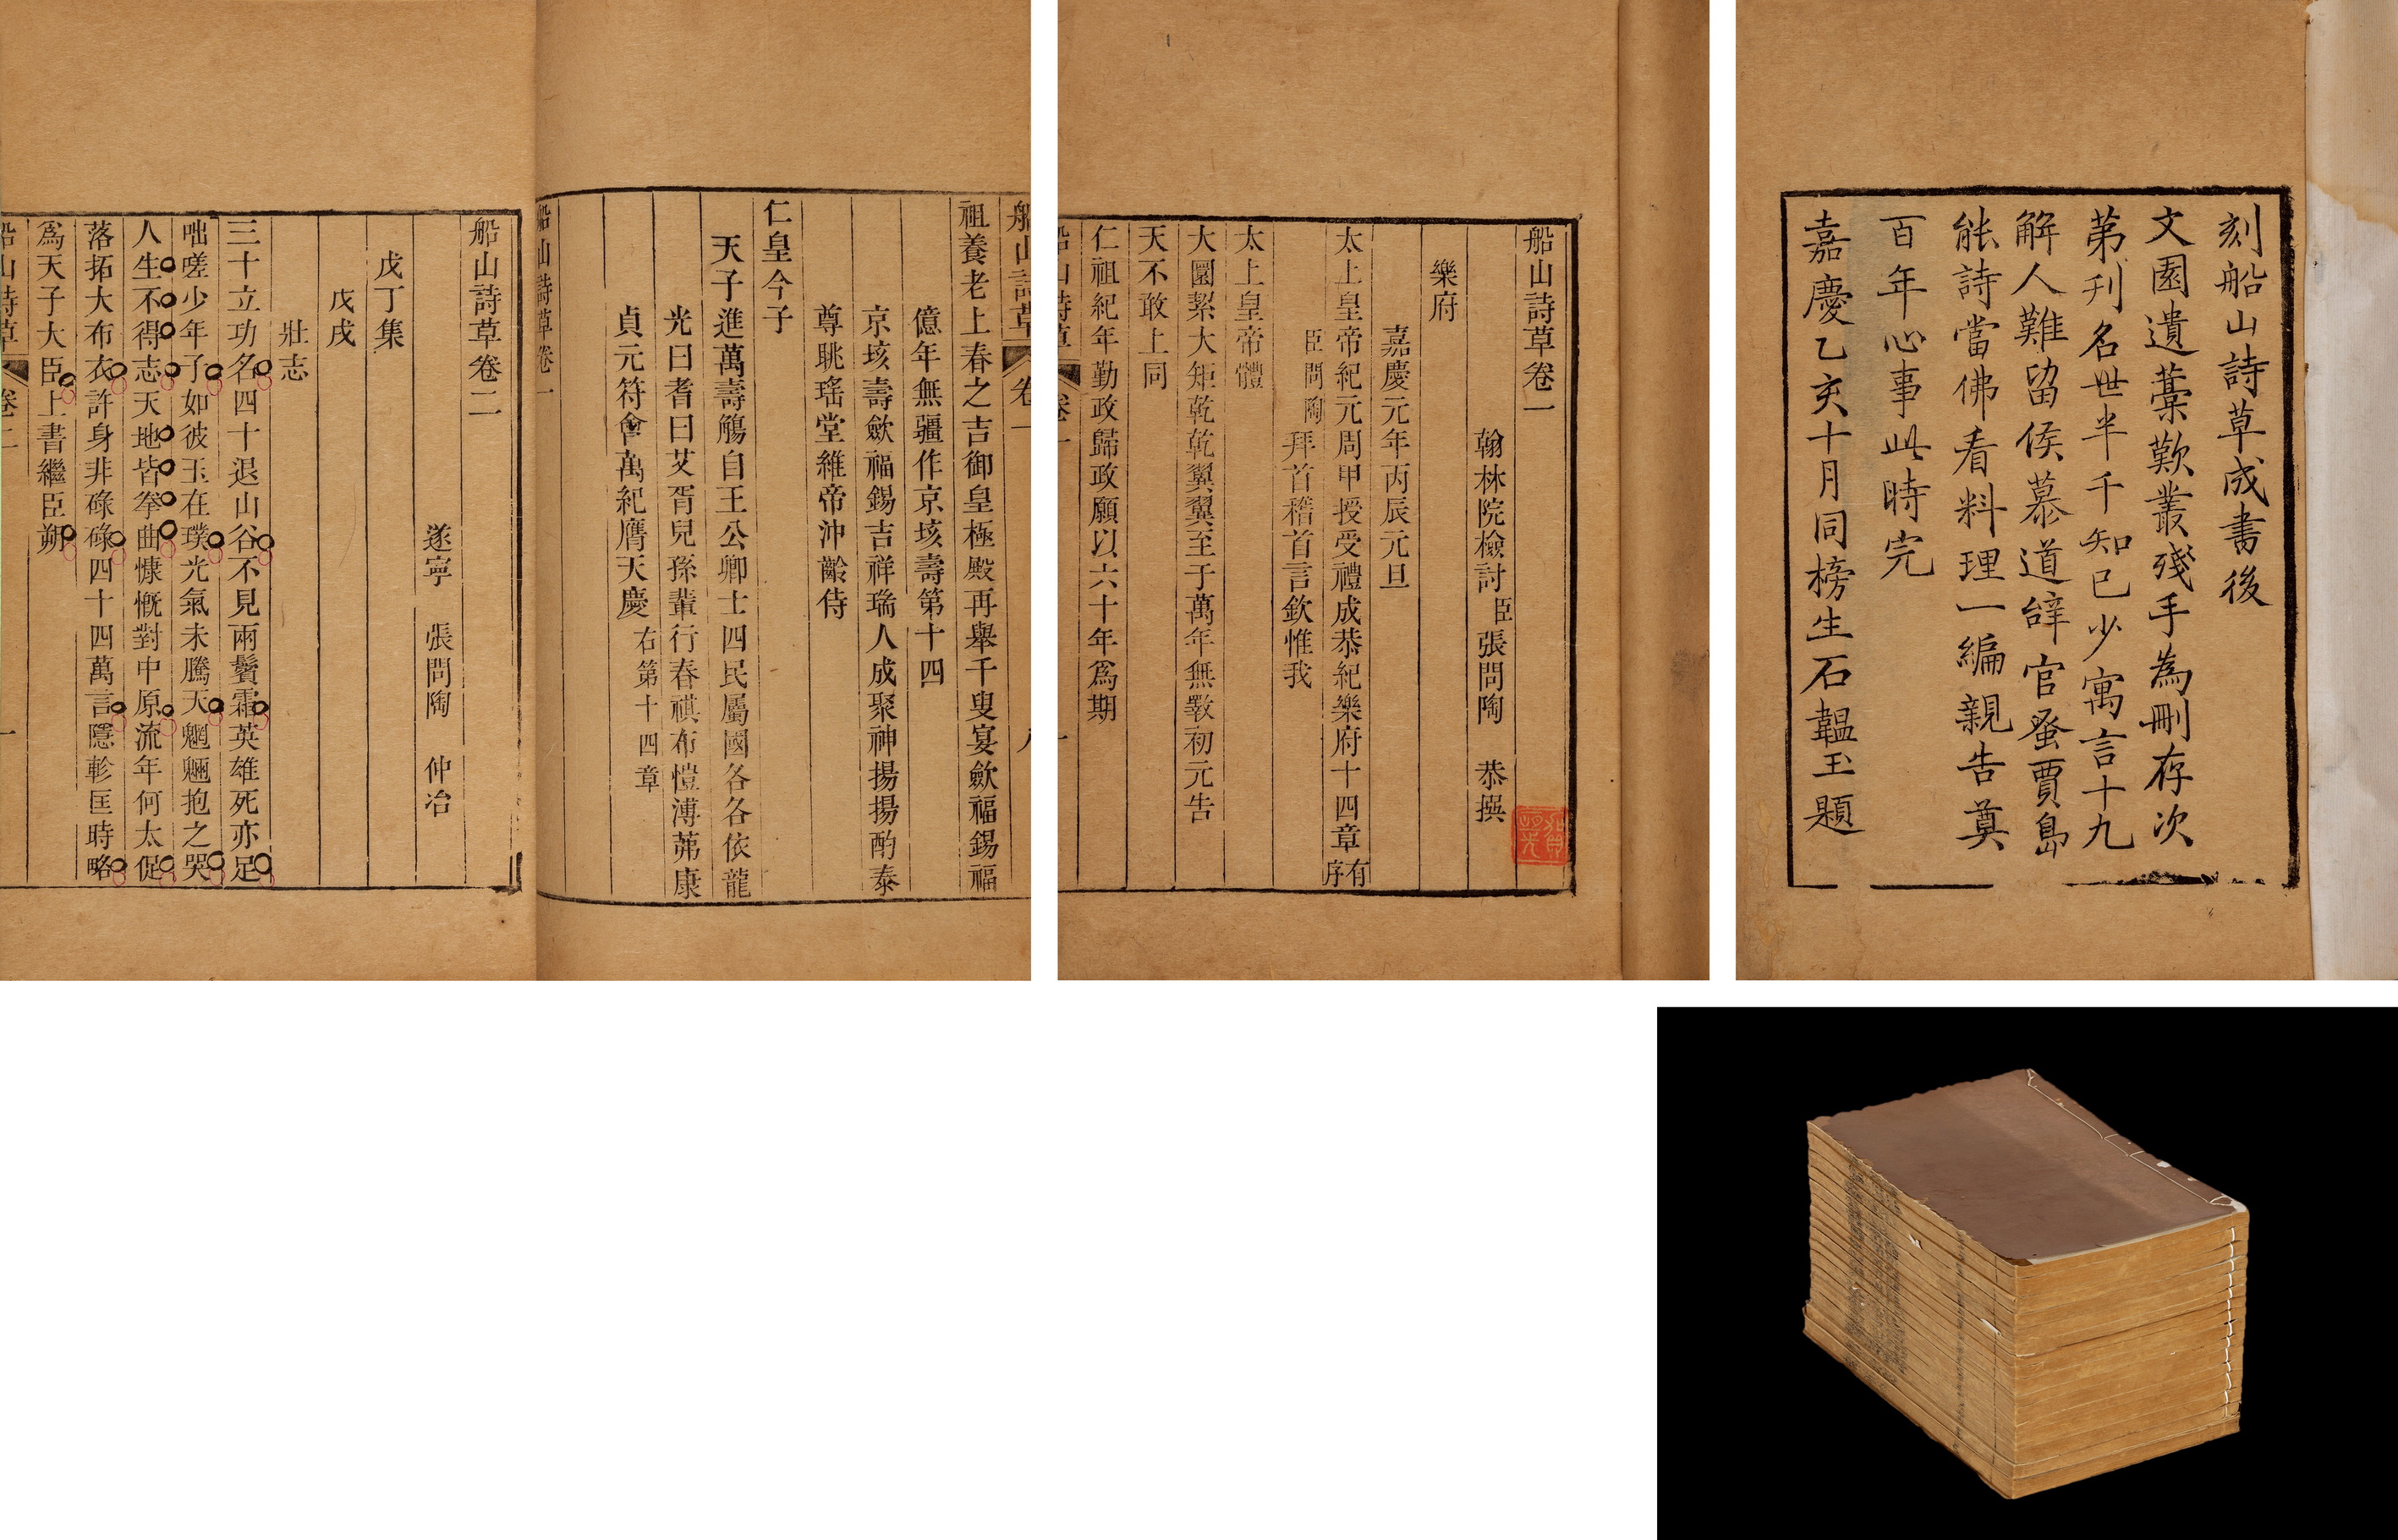 刻船山詩草成書後
文園遺藁歎叢殘手為刪存次
第刋名世半千知已少寓言十九
解人難留侯慕道辭官蚤賈島
能詩當佛看料理一編親告奠
百年心事此時完
嘉慶乙亥十月同榜生石韞玉題
船山詩草卷一
翰林院檢討臣張問陶 恭撰
樂府
嘉慶元年丙辰元旦
太上皇帝紀元周甲授受禮成恭紀樂府十四章有序
臣問陶拜首稽首言欽惟我
太上皇帝體
大圜絜大矩乾乾翼翼至于萬年無斁初元告
天不敢上同
仁祖紀年勤政歸政願以六十年爲期
船山詩草 卷一 一
船山詩草 卷一
祖養老上春之吉御皇極殿再舉千叟宴歛福錫福
億年無疆作京垓壽第十四
京垓壽歛福錫吉祥瑞人成聚神揚揚酌泰
尊眺瑤堂維帝沖齡侍
仁皇今子
天子進萬壽觴自王公卿士四民屬國各各依龍
光曰耆曰艾胥兒孫輩行春祺布愷溥茀康
貞元符會萬紀膺天慶右第十四章
船山詩草卷一
船山詩草卷二
遂寧 張問陶 仲冶
戊丁集
戊戌
壯志
三十立功名四十退山谷不見兩鬢霜英雄死亦足
咄嗟少年子如彼玉在璞光氣未騰天魍魎抱之哭
人生不得志天地皆拳曲慷慨對中原流年何太促
落拓大布衣許身非碌碌四十四萬言隱軫匡時略
爲天子大臣上書繼臣朔
船山詩草 卷二 一